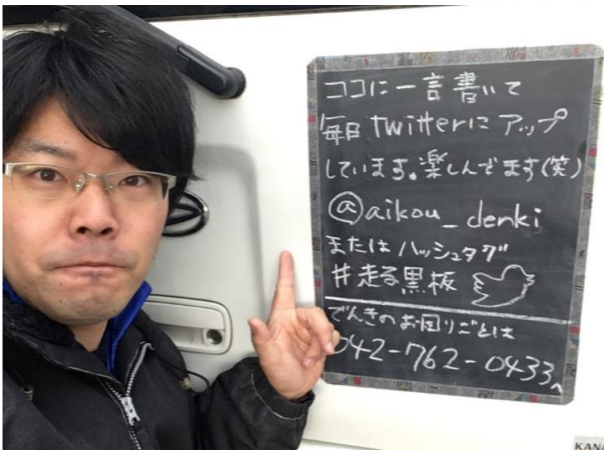 ココに一言書いて
毎日twitterに アップ
しています。楽しんでます(笑)
@aikou_denki
または ハッシュタグ
#走る黒板
でんきのお困りごとは
042-762-0433へ
KANA